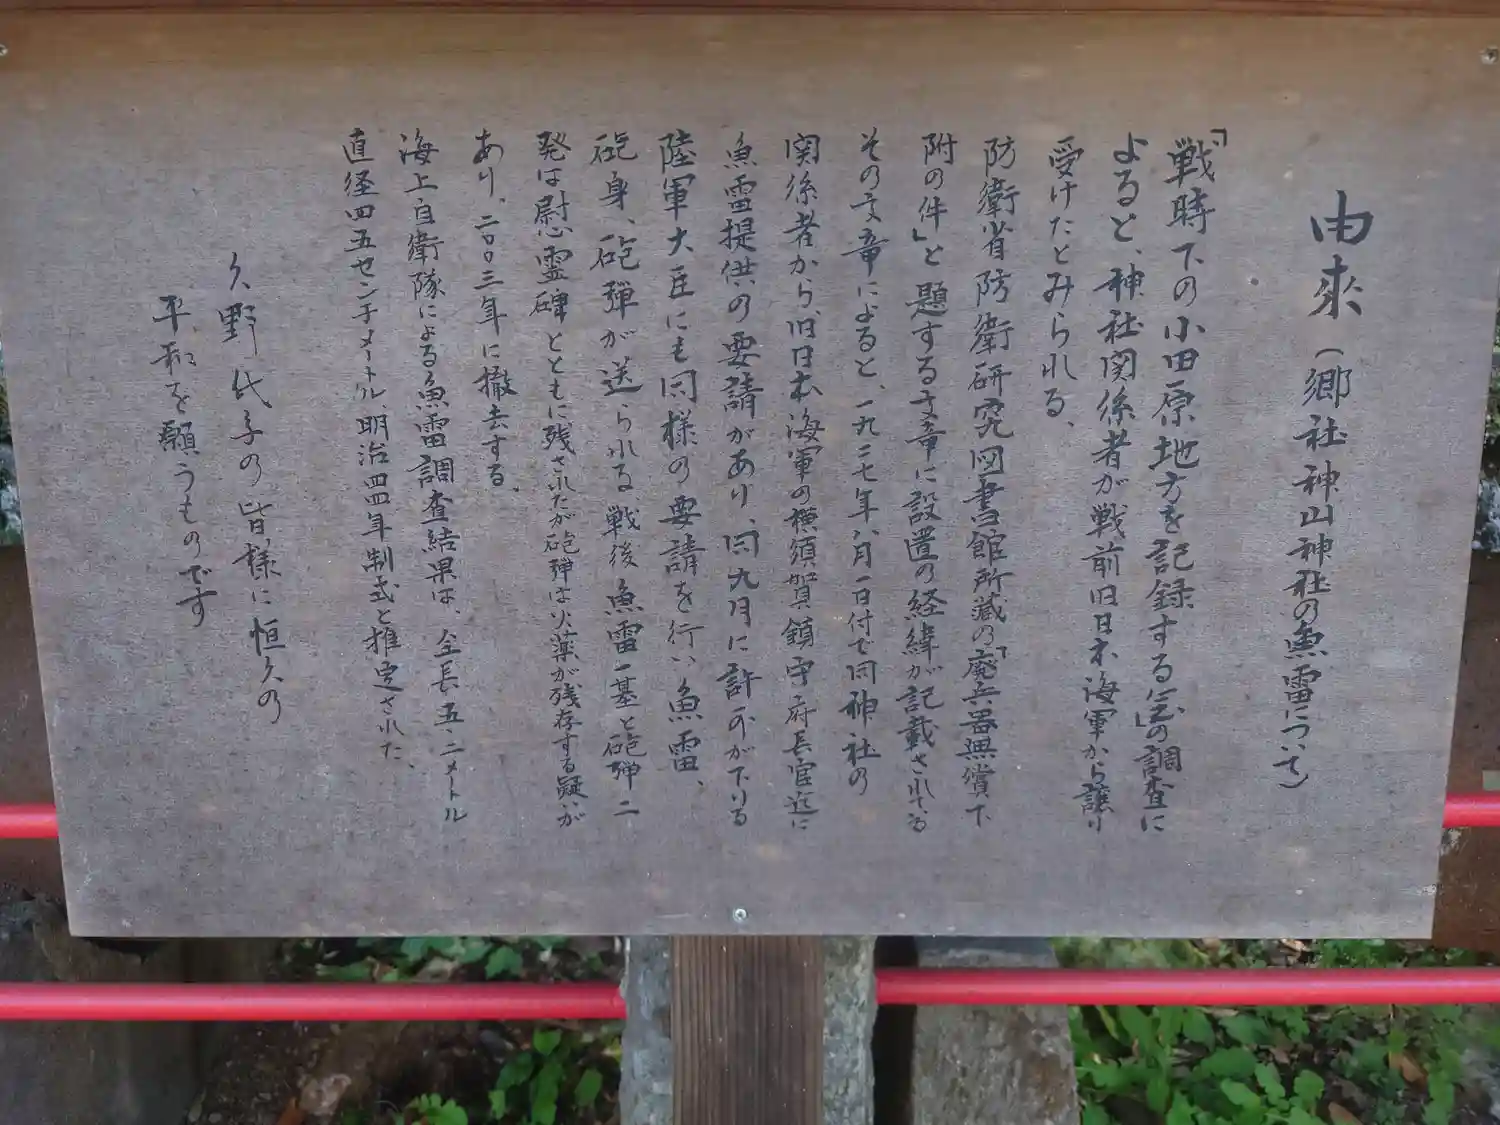 由来(郷社神山神社の魚雷について)
「戦時下の小田原地方を記録する会」の調査に
よると、神社関係者が戦前旧日本海軍から譲り
受けたとみられる、
防衛省防衛研究図書館所蔵の「廃兵器無償下
附の件」と題する文章に設置の経緯が記載されている
その文章によると、一九二七年八月一日付で同神社の
関係者から、旧日本海軍の横須賀鎮守府長官迄に
魚雷提供の要請があり、同九月に許可が下りる
陸軍大臣にも同様の要請を行い魚雷、
砲身、砲弾が送られる、戦後魚雷一基と砲弾二
発は慰霊碑とともに残されたが砲弾は火薬が残存する疑いが
あり、二〇〇三年に撤去する、
海上自衛隊による魚雷調査結果は、全長五・二メートル
直径四五センチメートル、明治四四年制式と推定された、
久野氏子の皆様に恒久の
平和を願うものです